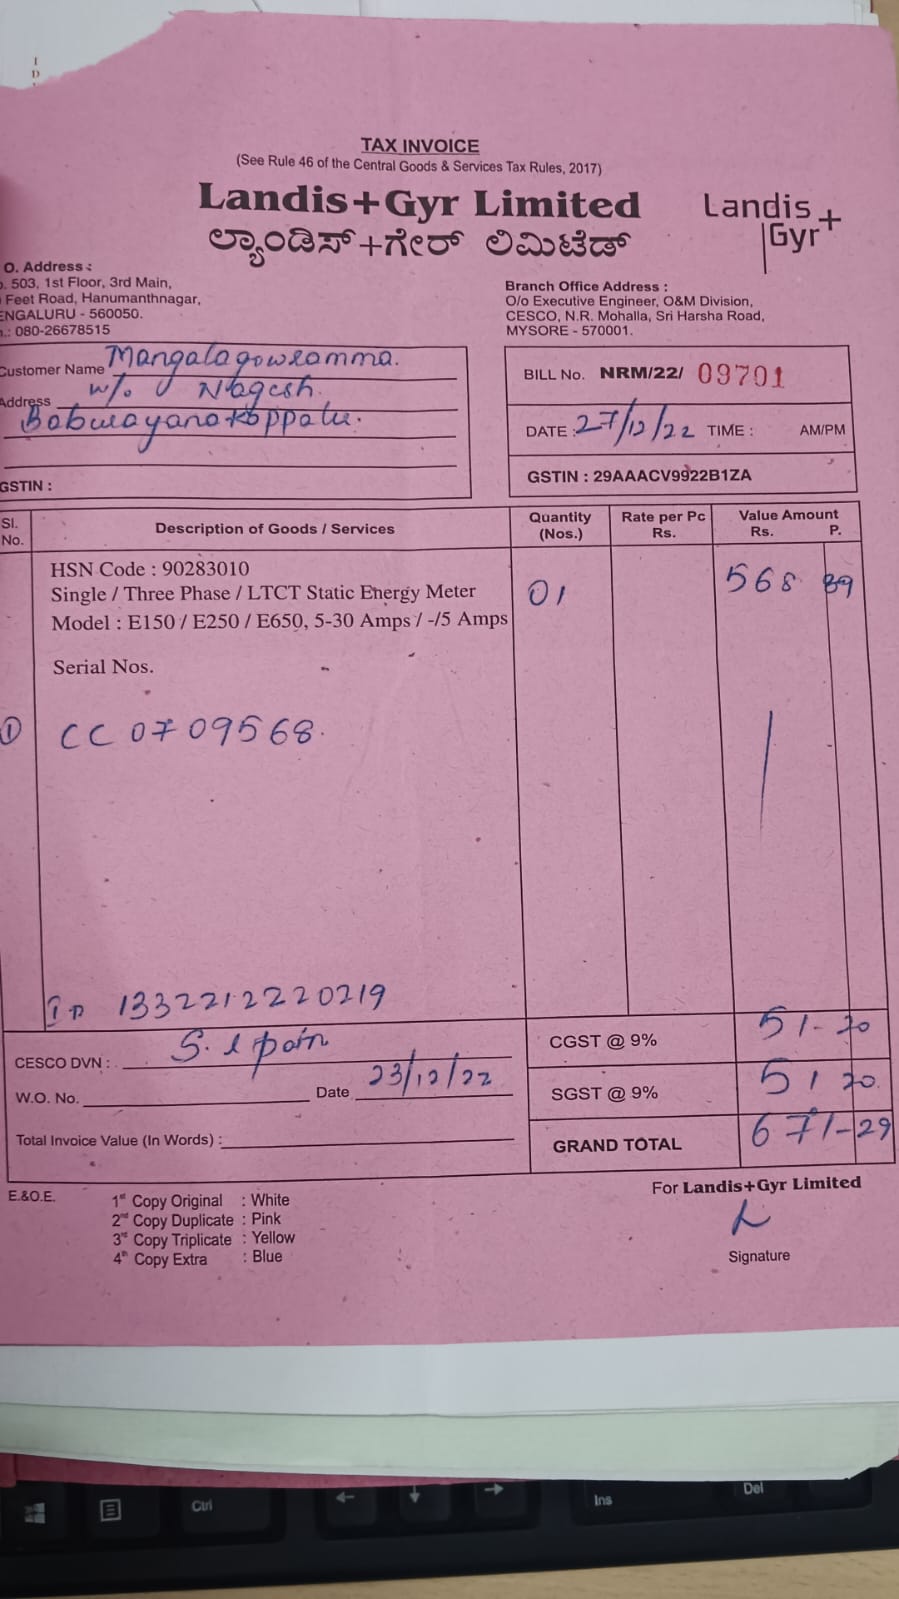 TAX INVOICE
(See Rule 46 of the Central Goods & Services Tax Rules, 2017)
Landis+Gyr Limited
ಲ್ಯಾಂಡಿಸ್+ಗೇರ್ ಲಿಮಿಟೆಡ್
Landis
Gyr+
O. Address :
503, 1st Floor, 3rd Main,
Feet Road, Hanumanthnagar,
ENGALURU - 560050.
080-26678515
Branch Office Address :
O/o Executive Engineer, O&M Division,
CESCO, N.R. Mohalla, Sri Harsha Road,
MYSORE - 570001.
Customer Name Mangalagowramma.
Address w/o Nagesh
Baburayanakoppalu.
GSTIN :
BILL No. NRM/22/ 09701
DATE : 27/12/22 TIME : AM/PM
GSTIN : 29AAACV9922B1ZA
Sl. No. Description of Goods / Services Quantity (Nos.) Rate per Pc Rs. Value Amount Rs. P.
HSN Code : 90283010
Single / Three Phase / LTCT Static Energy Meter 01 568 89
Model : E150 / E250 / E650, 5-30 Amps / -/5 Amps
Serial Nos.
① CC 0709568.
ID 1332212220219
CESCO DVN :
W.O. No. Date 23/12/22
Total Invoice Value (In Words) :
CGST @ 9% 51-20
SGST @ 9% 51 20
GRAND TOTAL 671-29
E.&O.E.
1st Copy Original : White
2nd Copy Duplicate : Pink
3rd Copy Triplicate : Yellow
4th Copy Extra : Blue
For Landis+Gyr Limited
Signature
Ctrl
←
↓
→
Ins
Del